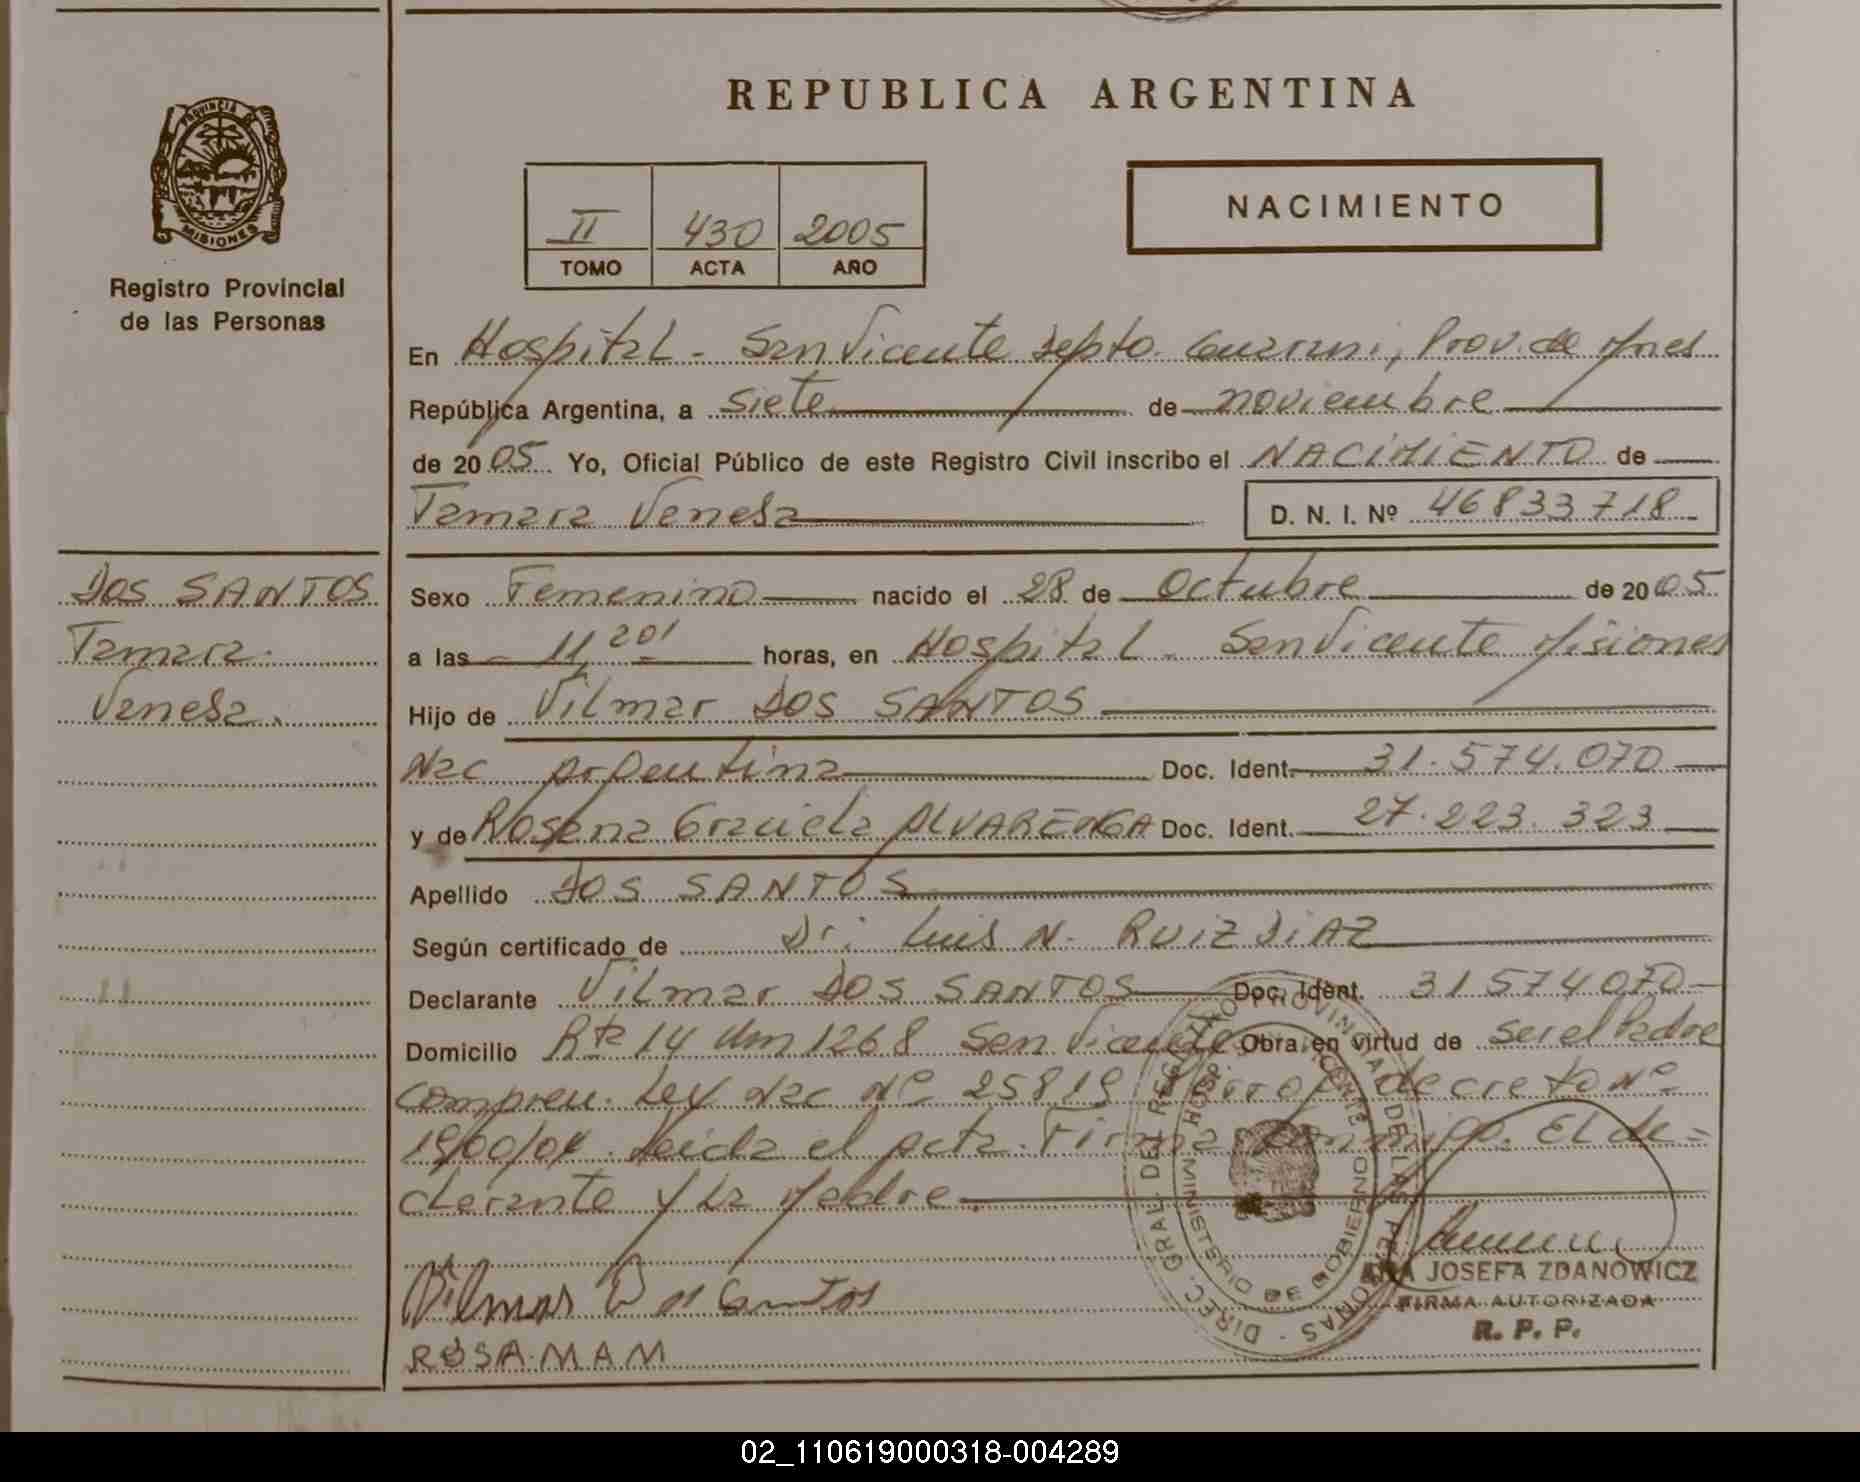 REPUBLICA ARGENTINA
PROVINCIA DE MISIONES
Registro Provincial
de las Personas
II 430 2005
TOMO ACTA AÑO
NACIMIENTO
En Hospital - San Vicente Depto. Guarani, Prov. de Mnes
República Argentina, a siete de noviembre
de 2005 Yo, Oficial Público de este Registro Civil inscribo el NACIMIENTO de
Tamara Vanesa D. N. I. Nº 46833718
DOS SANTOS
Tamara
Vanesa
Sexo Femenino nacido el 28 de Octubre de 2005
a las 11,20' horas, en Hospital - San Vicente Misiones
Hijo de Vilmar DOS SANTOS
Nac Argentina Doc. Ident. 31.574.070
y de Rosana Graciela ALVARENGA Doc. Ident. 27.223.323
Apellido DOS SANTOS
Según certificado de Dr. Luis N. RUIZ DIAZ
Declarante Vilmar DOS SANTOS Doc. Ident. 31574070
Domicilio Rta 14 Km 1268 San Vicente Obra en virtud de ser el Padre
Compren. Ley Nac Nº 25819 decreto Nº
Leida el acta. Firma conmigo. El de-
clarante y la Madre.
Vilmar Dos Santos
DIREC. GRAL. DEL REGISTRO PROVINCIAL DE LAS PERSONAS
MINISTERIO DE GOBIERNO
ANA JOSEFA ZDANOWICZ
FIRMA AUTORIZADA
R. P. P.
02_110619000318-004289